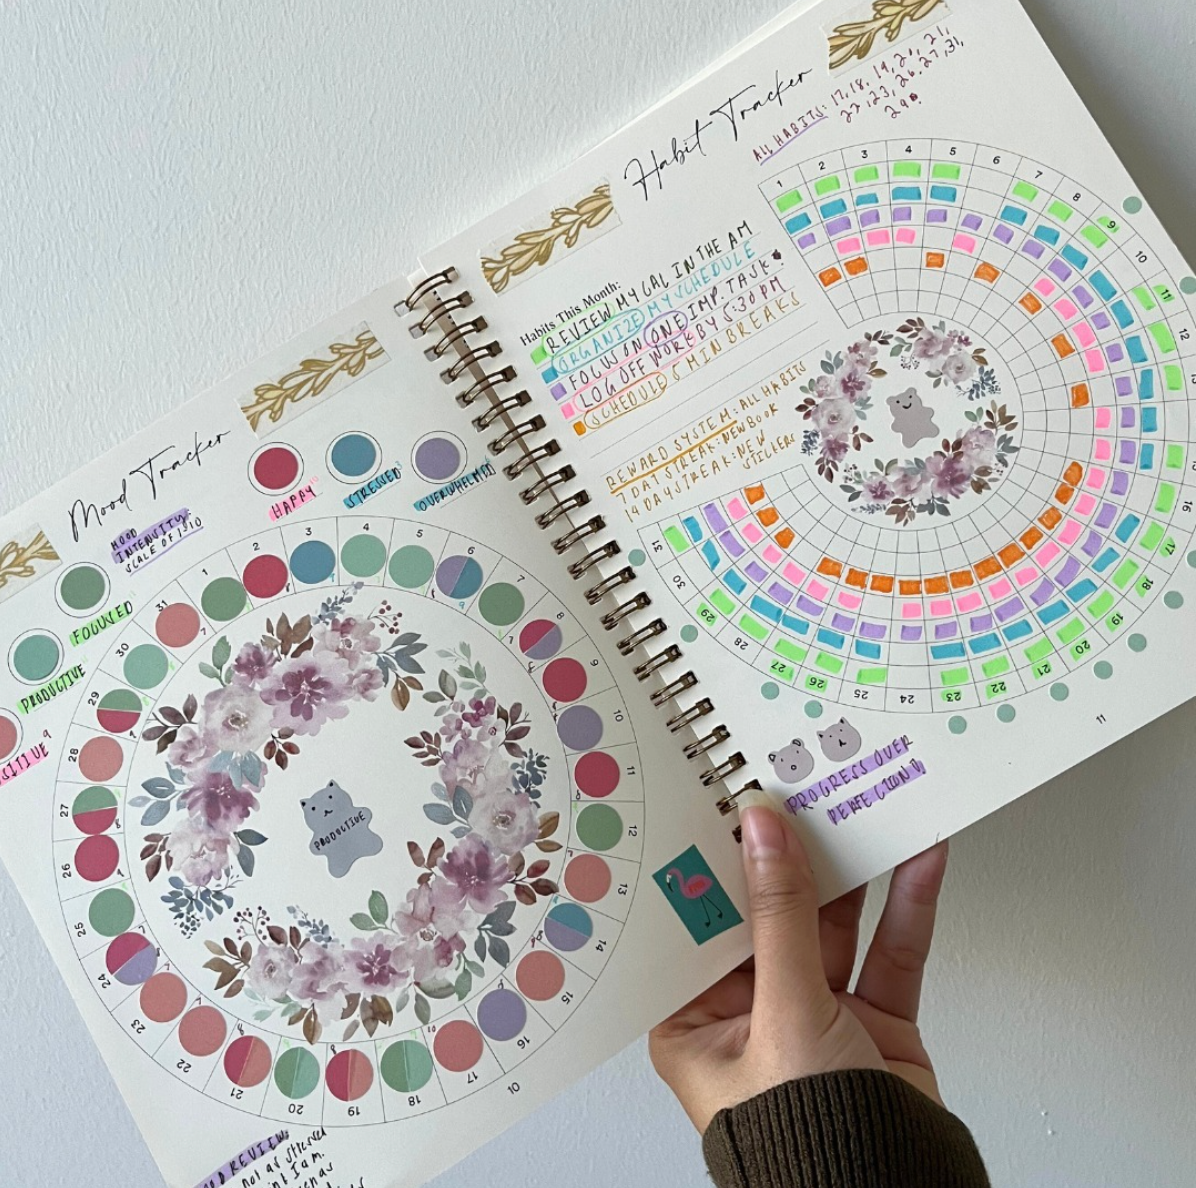 Mood Tracker
MOOD
INTENSITY:
SCALE OF 1-10
HAPPY
STRESSED
OVERWHELMED
FOCUSED
PRODUCTIVE
SITIVE
1
2
3
4
5
6
7
8
9
10
11
12
13
14
15
16
17
18
19
20
21
22
23
24
25
26
27
28
29
30
31
PRODUCTIVE
10
REVIEW:
not as stressed
I am.
Habit Tracker
ALL HABITS: 17, 18, 19, 20, 21,
22, 23, 26, 27, 31,
29
Habits This Month:
REVIEW MY CAL IN THE AM
ORGANIZE MY SCHEDULE
FOCUS ON ONE IMP. TASK
LOG OFF WORK BY 5:30 PM
SCHEDULE 5 MIN BREAKS
REWARD SYSTEM: ALL HABITS
7 DAY STREAK: NEW BOOK
14 DAY STREAK: NEW
STICKERS
1
2
3
4
5
6
7
8
9
10
11
12
13
15
16
17
18
19
20
21
22
23
24
25
26
27
28
29
30
31
PROGRESS OVER
PERFECTION!
11